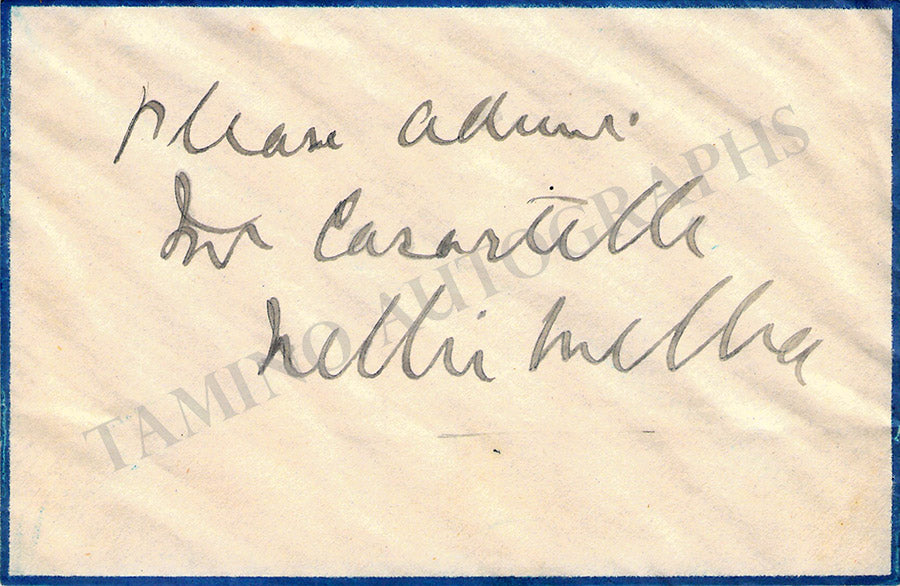 Please admit
Mr Casartelli
Nellie Melba
TAMINO AUTOGRAPHS